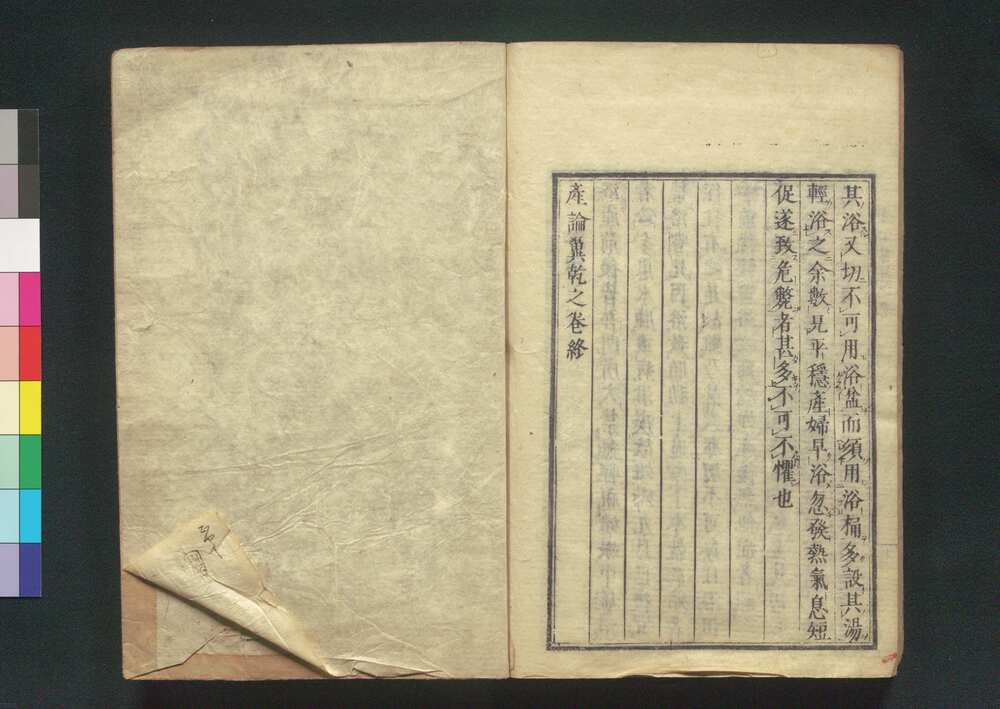 其浴又切不可用浴盆而須用浴桶多設其湯
輕浴之余數見平穩產婦早浴忽發熱氣息短
促遂致危斃者甚多不可不懼也
產論翼乾之卷終